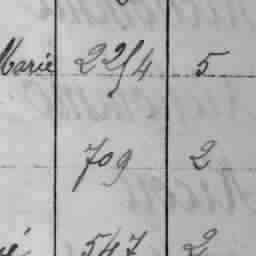 Marie 2254 5
709 2
547 2